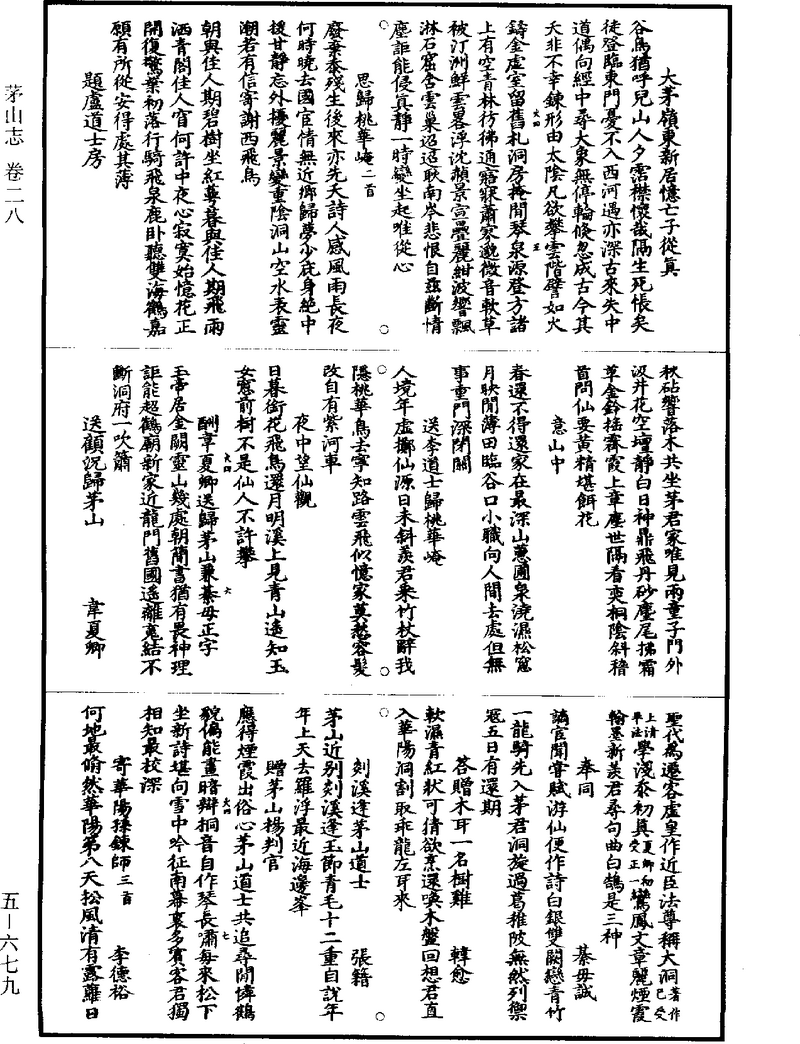 茅山志　卷二八
大茅嶺東新居憶亡子從真
谷鳥猶呼兒山人夕霑襟懷哉隔生死悵矣
徒登臨東門憂不入西河遇亦深古來失中
道偶向經中尋大象無停輪倏忽成古今其
夭非不幸鍊形由太陰凡欲攀雲階譬如火
鑄金虛室留舊札洞房掩閒琴泉源登方諸
上有空青林彷彿通寤寐蕭寥邈微音軟草
被汀洲鮮雲畧浮沈赬景宣疊麗紺波響飄
淋石窟含雲巢迢迢耿南岑悲恨自茲斷情
塵詎能侵真靜一時變坐起唯從心
思歸桃華崦二首
廢棄忝殘生後來亦先夭詩人感風雨長夜
何時曉去國宦情無近鄉歸夢少庇身絕中
援甘靜忘外擾麗景變重陰洞山空水表靈
潮若有信寄謝西飛鳥
朝與佳人期碧樹坐紅萼暮與佳人期飛雨
洒青閣佳人窅何許中夜心寂寞始憶花正
開復驚葉初落行騎飛泉鹿卧聽雙海鶴嘉
願有所從安得處其薄
題盧道士房
秋砧響落木共坐茅君家唯見兩童子門外
汲井花空壇靜白日神鼎飛丹砂麈尾拂霜
草金鈴搖霽霞上章塵世隔看奕桐陰斜稽
首問仙要黃精堪餌花
意山中
春還不得還家在最深山蕙圃泉澆濕松窻
月映閒薄田臨谷口小職向人間去處但無
事重門深閉關
送李道士歸桃華崦
人境年虛擲仙源日未斜羨君乘竹杖辭我
隱桃華鳥去寧知路雲飛似憶家莫愁容髮
改自有紫河車
夜中望仙觀
日暮銜花飛鳥還月明溪上見青山遙知玉
女窻前樹不是仙人不許攀
酬韋夏卿送歸茅山兼綦毋正字
玉帝居金闕靈山幾處朝簡書猶有畏神理
詎能超鶴廟新家近龍門舊國遙離寃結不
斷洞府一吹簫
送顧況歸茅山　　韋夏卿
聖代為遷客虛皇作近臣法尊稱大洞著作已受
上清畢法學淺忝初真夏卿初受正一鸞鳳文章麗煙霞
翰墨新羨君尋句曲白鵠是三神
奉同　　綦毋誠
謫官聞嘗賦游仙便作詩白銀雙闕戀青竹
一龍騎先入茅君洞旋過葛稚陂無然列禦
冦五日有還期
答贈木耳一名樹雞　　韓愈
軟濕青紅狀可猜欲烹還喚木盤回想君直
入華陽洞割取乖龍左耳來
剡溪逢茅山道士　　張籍
茅山近别剡溪逢玉節青毛十二重自說年
年上天去羅浮最近海邊峯
贈茅山楊判官
應得煙霞出俗心茅山道士共追尋閒憐鶴
貌偏能畫暗辯桐音自作琴長嘯每來松下
坐新詩堪向雪中吟征南幕裏多賓客君獨
相知最校深
寄華陽孫鍊師三首　　李德裕
何地最翛然華陽第八天松風清有露蘿日
五—六七九